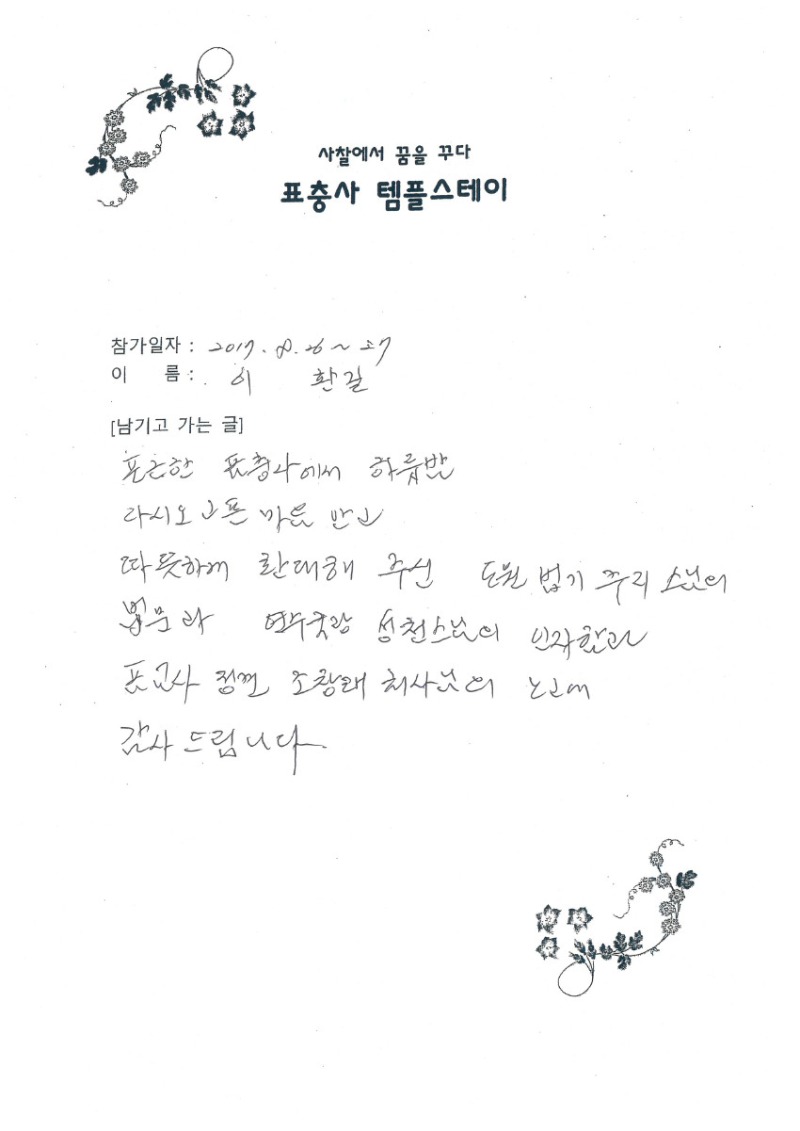 사찰에서 꿈을 꾸다
표충사 템플스테이
참가일자 : 2017. 8. 26 ~ 27
이 름 : 이 환길
[남기고 가는 글]
포근한 표충사에서 하룻밤
다시오고픈 마음 안고
따뜻하게 환대해 주신 도원 법기 주지 스님의
법문과 성천스님의 인자함과
포교사 조창래 처사님의 노고에
감사 드립니다